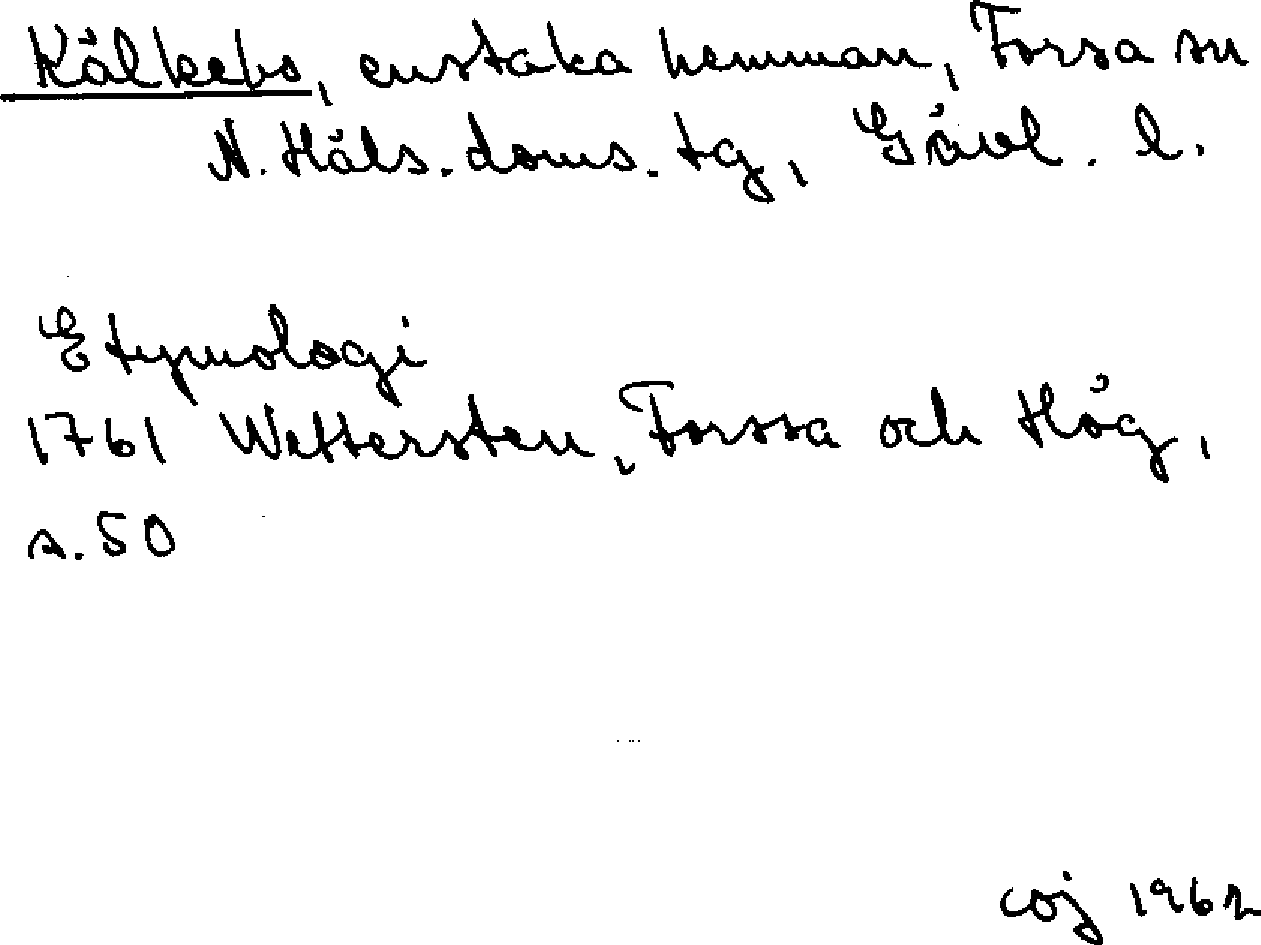 Kälkebo, enstaka hemman, Forsa sn
N. Häls. doms. tg, Gävl. l.
Etymologi
1761 Wettersten, Forssa och Hög,
s. 50
coj 1962